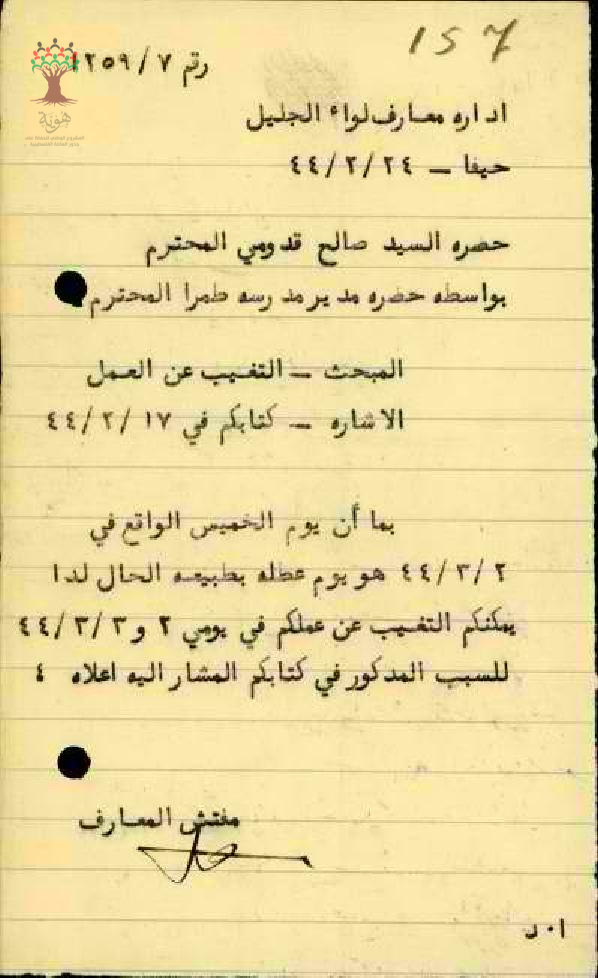 157
رقم ١٢٥٩/٧
هوية
اداره معارف لواء الجليل
حيفا — ٤٤/٢/٢٤
حضره السيد صالح قدومي المحترم
بواسطه حضره مدير مدرسه طمرا المحترم
المبحث — التغيب عن العمل
الاشاره — كتابكم في ٤٤/٢/١٧
بما أن يوم الخميس الواقع في
٤٤/٣/٢ هو يوم عطله بطبيعه الحال لدا
يمكنكم التغيب عن عملكم في يومي ٢ و ٤٤/٣/٣
للسبب المدكور في كتابكم المشار اليه اعلاه ٤
مفتش المعارف
ا٠د